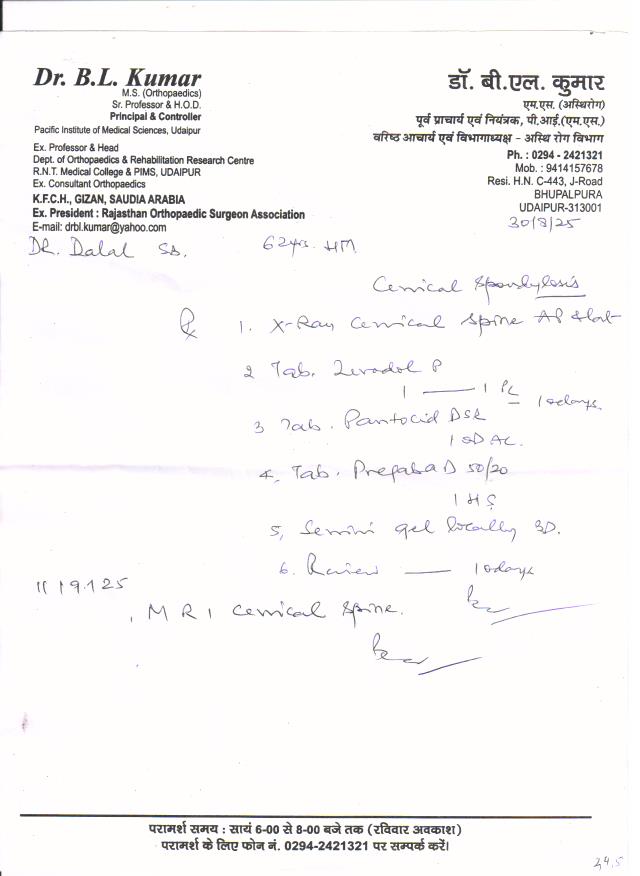 Dr. B.L. Kumar
M.S. (Orthopaedics)
Sr. Professor & H.O.D.
Principal & Controller
Pacific Institute of Medical Sciences, Udaipur
Ex. Professor & Head
Dept. of Orthopaedics & Rehabilitation Research Centre
R.N.T. Medical College & PIMS, UDAIPUR
Ex. Consultant Orthopaedics
K.F.C.H., GIZAN, SAUDIA ARABIA
Ex. President : Rajasthan Orthopaedic Surgeon Association
E-mail: drbl.kumar@yahoo.com
डॉ. बी.एल. कुमार
एम.एस. (अस्थिरोग)
पूर्व प्राचार्य एवं नियंत्रक, पी.आई.(एम.एस.)
वरिष्ठ आचार्य एवं विभागाध्यक्ष - अस्थि रोग विभाग
Ph. : 0294 - 2421321
Mob. : 9414157678
Resi. H.N. C-443, J-Road
BHUPALPURA
UDAIPUR-313001
30/8/25
DR. Dalal Sb. 62yrs. HM
Cervical Spondylosis
Rx 1. X-Ray Cervical Spine AP & Lat
2 Tab. Zerodol P
1 — 1 PC — 10days
3 Tab. Pantocid DSR
1 OD AC.
4. Tab. Pregaba D 50/20
1 HS
5, gel locally 3D.
6. Review — 10days
11/9/25
, MRI Cervical Spine.
परामर्श समय : सायं 6-00 से 8-00 बजे तक (रविवार अवकाश)
परामर्श के लिए फोन नं. 0294-2421321 पर सम्पर्क करें।